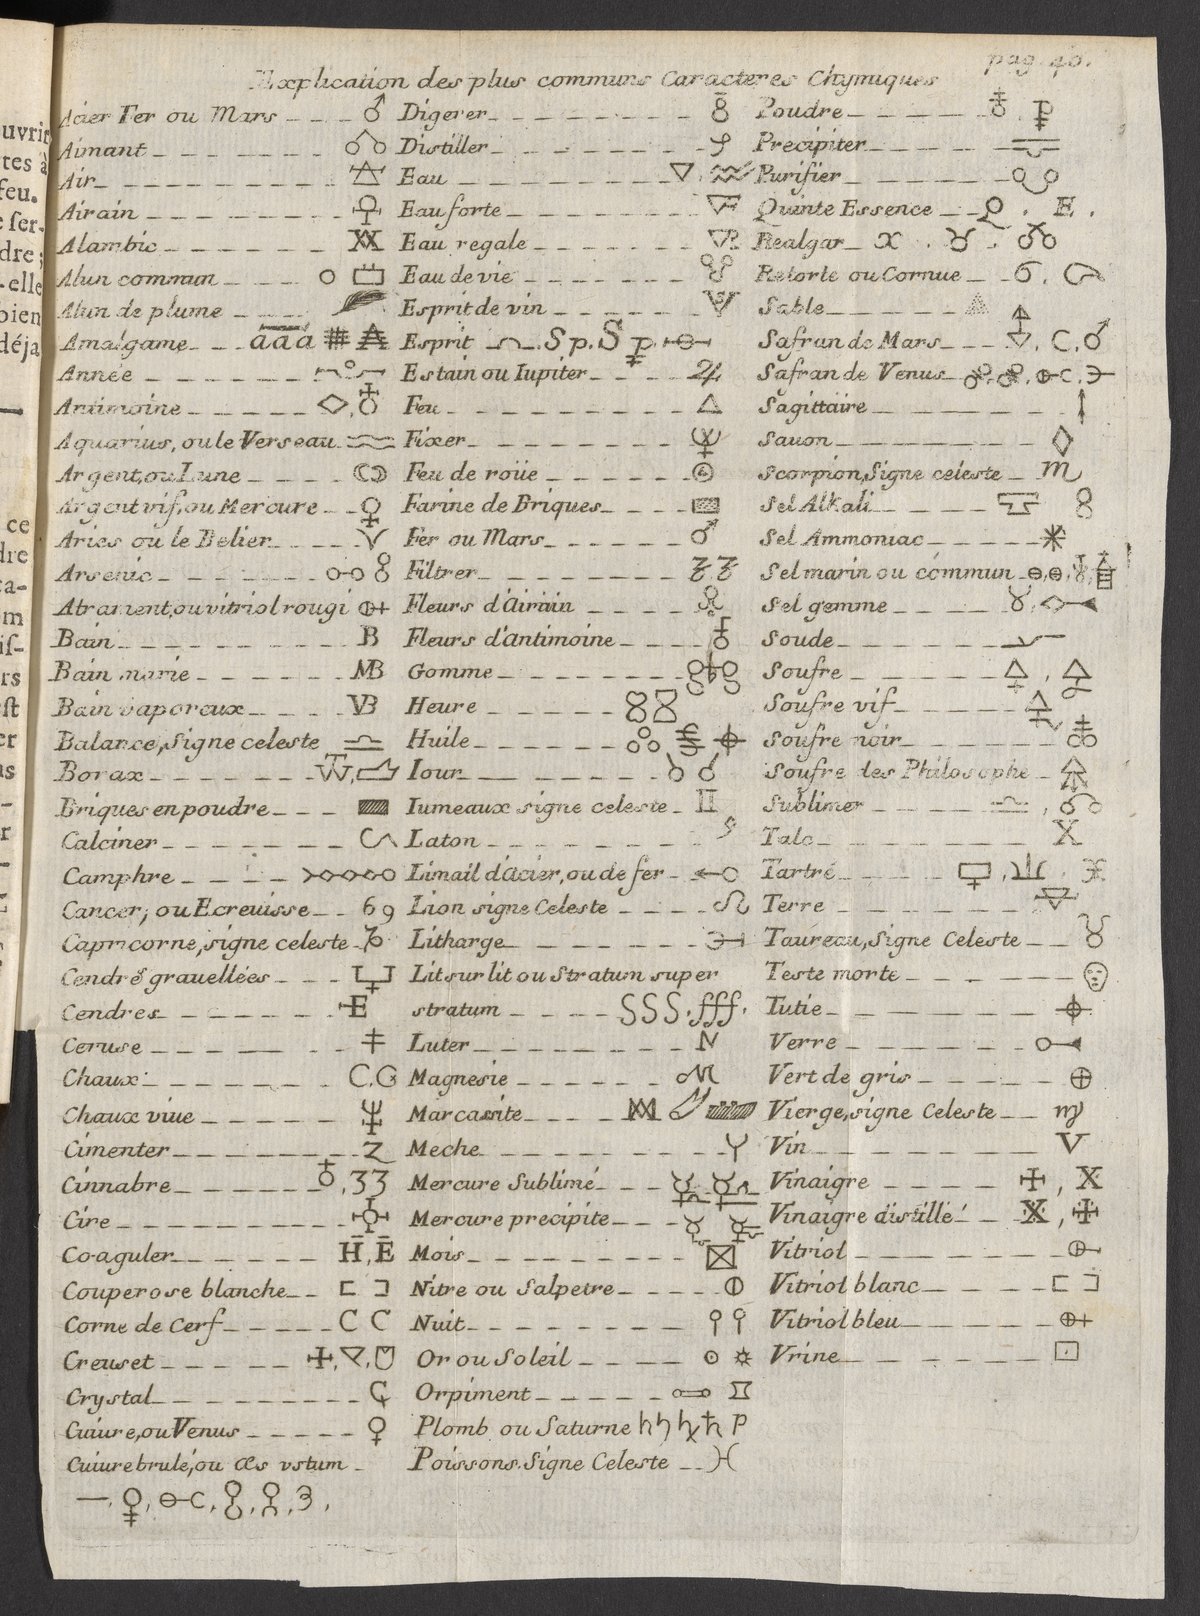 pag. 40.
Explication des plus communs Caracteres Chymiques
Acier Fer ou Mars
Aimant
Air
Airain
Alambic
Alun commun
Alun de plume
Amalgame aaa
Année
Antimoine
Aquarius, ou le Verseau
Argent, ou Lune
Argent vif, ou Mercure
Aries ou le Belier
Arsenic
Atrament, ou vitriol rougi
Bain B
Bain marie MB
Bain vaporeux VB
Balance, signe celeste
Borax
Briques en poudre
Calciner
Camphre
Cancer, ou Ecreuisse 69
Capricorne, signe celeste
Cendrẽ grauellées
Cendres E
Ceruse
Chaux C. G
Chaux viue
Cimenter Z
Cinnabre 33
Cire
Coaguler H, E
Couperose blanche
Corne de Cerf C C
Creuset
Crystal
Cuiure, ou Venus
Cuiure brulé, ou æs vstum
Digerer
Distiller
Eau
Eau forte
Eau regale
Eau de vie
Esprit de vin
Esprit Sp. Sp
Estain ou Iupiter
Feu
Fixer
Feu de roüe
Farine de Briques
Fer ou Mars
Filtrer
Fleurs d'Airain
Fleurs d'antimoine
Gomme
Heure
Huile
Iour
Iumeaux signe celeste
Laton
Limail d'Acier, ou de fer
Lion signe Celeste
Litharge
Lit sur lit ou Stratum super
stratum SSS. fff.
Luter
Magnesie
Marcassite
Meche
Mercure Sublimé
Mercure precipite
Mois
Nitre ou Salpetre
Nuit
Or ou Soleil
Orpiment
Plomb ou Saturne P
Poissons. Signe Celeste
Poudre
Precipiter
Purifier
Quinte Essence E.
Realgar
Retorte ou Cornue
Sable
Safran de Mars
Safran de Venus
Sagittaire
Sauon
Scorpion, Signe celeste
Sel Alkali
Sel Ammoniac
Sel marin ou cómmun
Sel gemme
Soude
Soufre
Soufre vif
Soufre noir
Soufre des Philosophe
Sublimer
Talc X
Tartre
Terre
Taureau, Signe Celeste
Teste morte
Tutie
Verre
Vert de gris
Vierge, signe Celeste
Vin V
Vinaigre X
Vinaigre distillé
Vitriol
Vitriol blanc
Vitriol bleu
Vrine
ouvrir
tes à
feu.
dre ;
-elle
déja
ce
dre